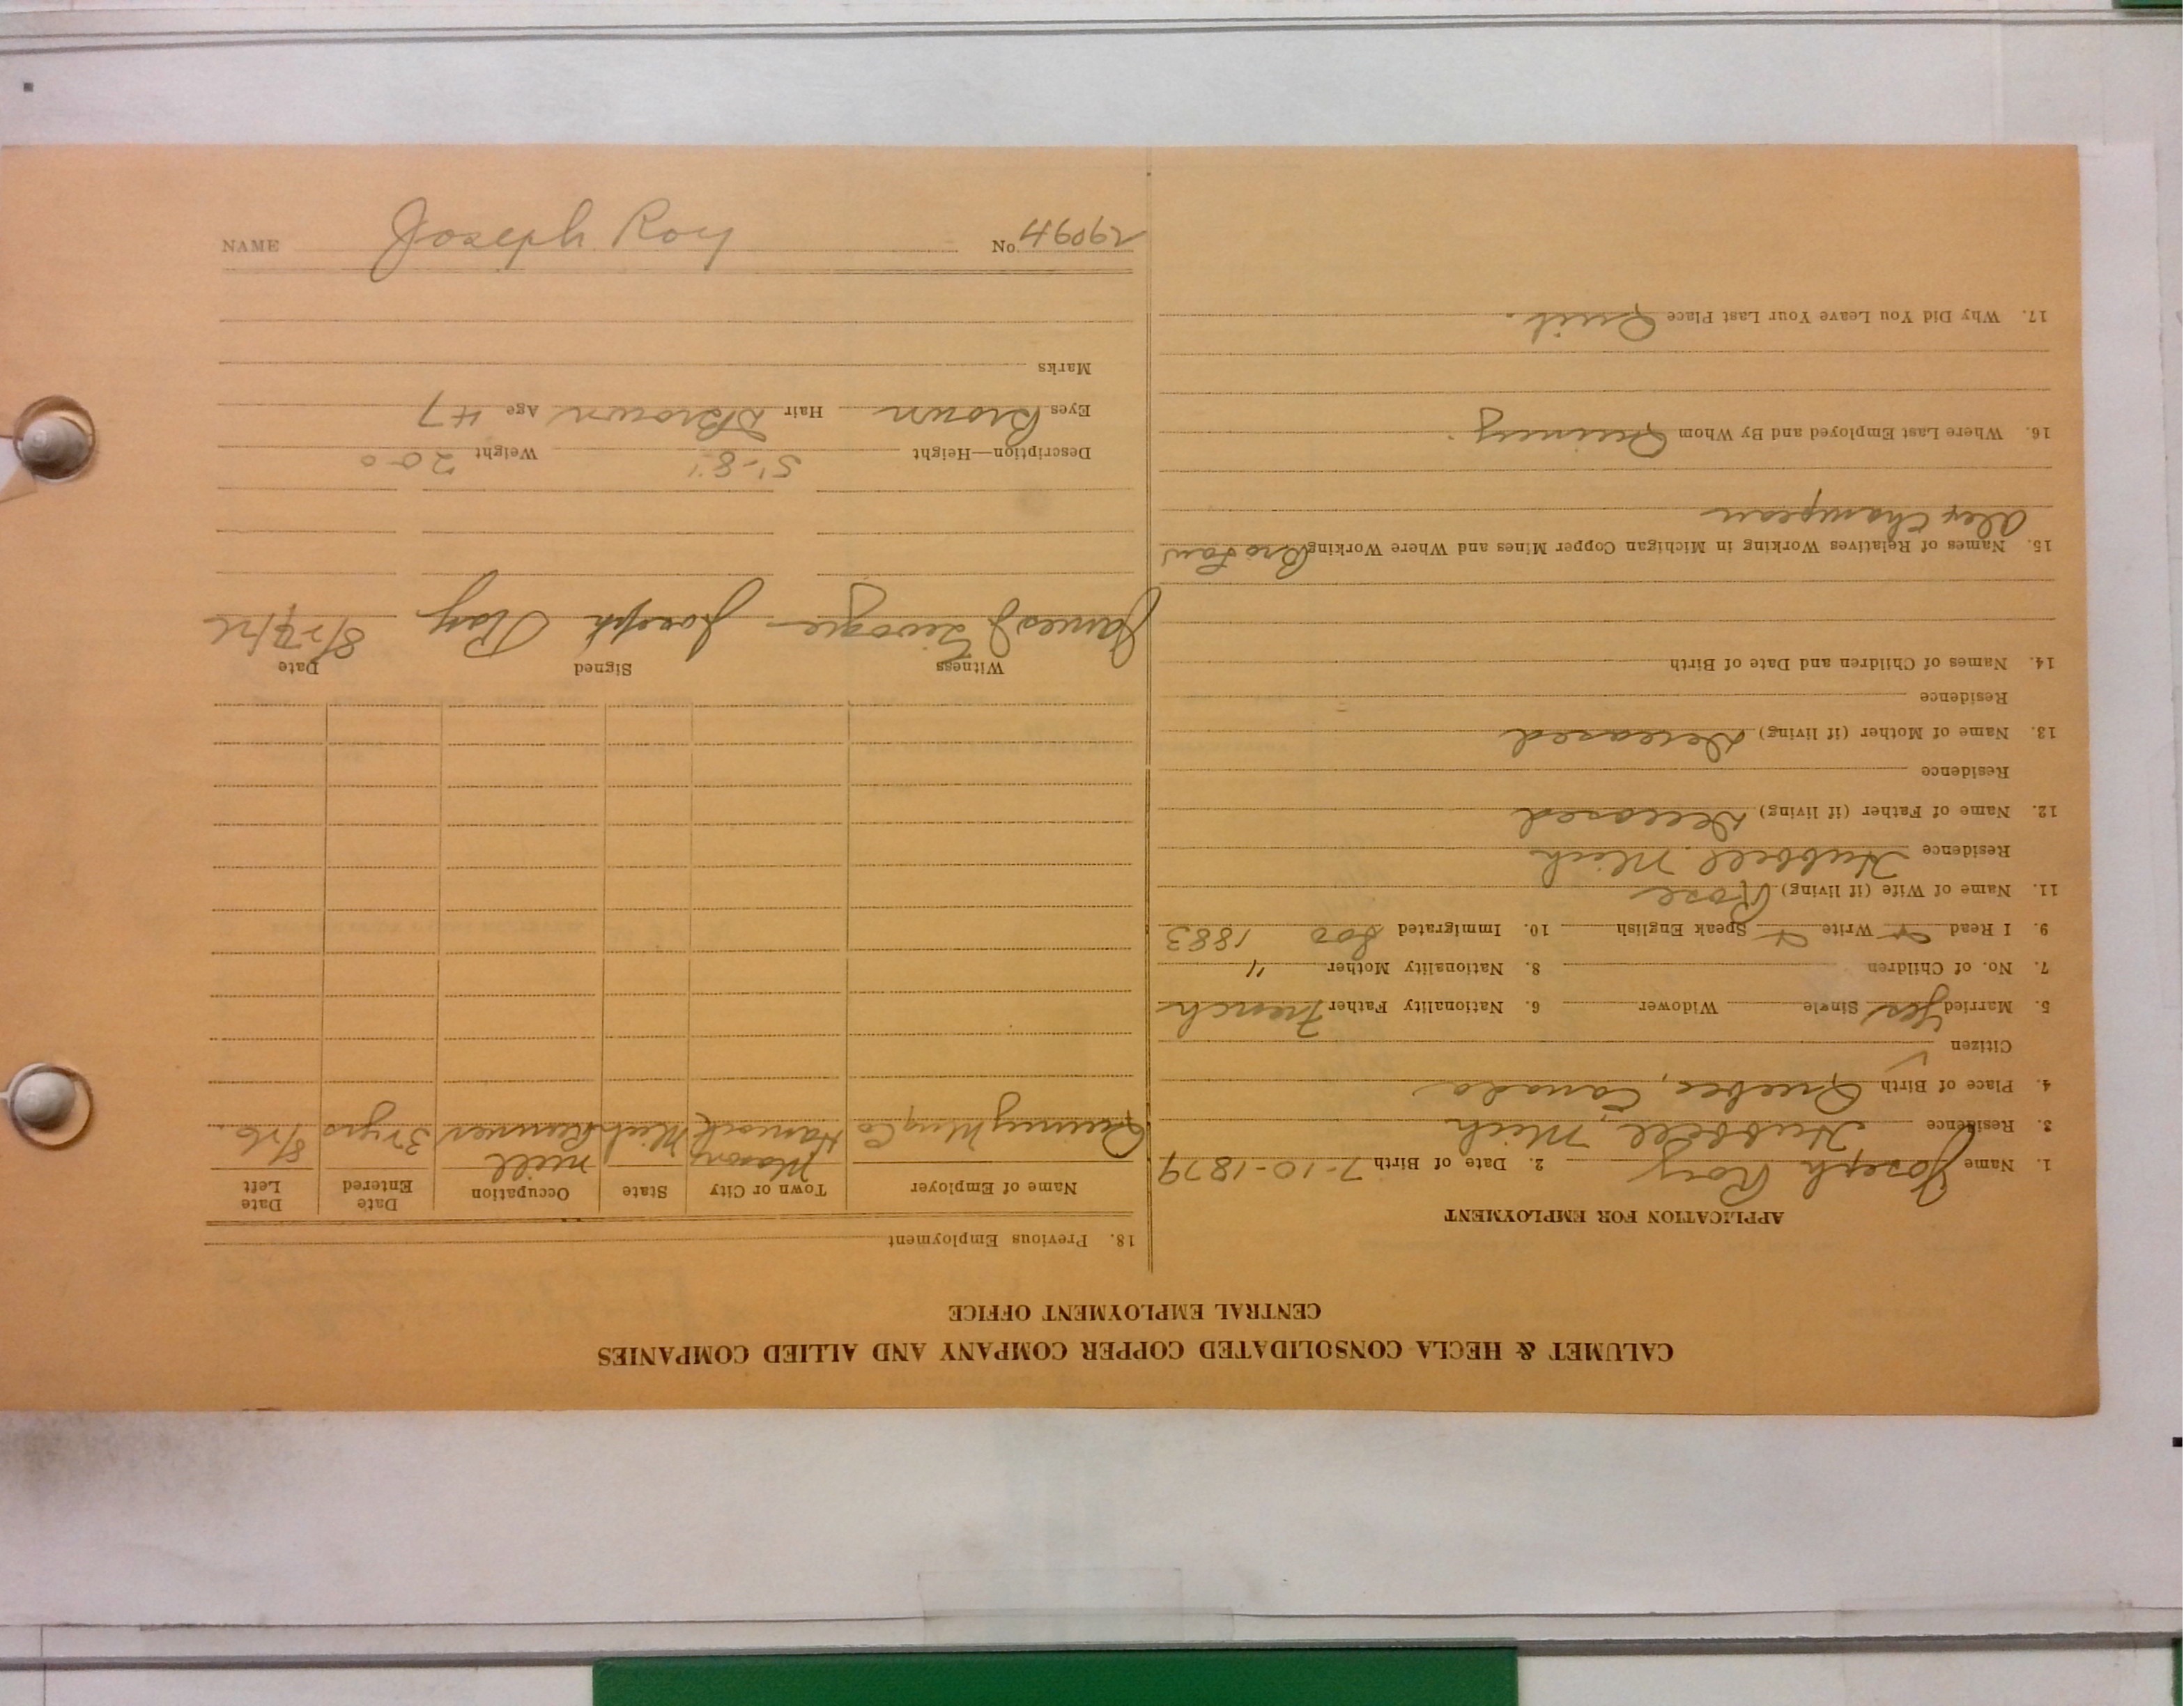 CALUMET & HECLA CONSOLIDATED COPPER COMPANY AND ALLIED COMPANIES
CENTRAL EMPLOYMENT OFFICE
APPLICATION FOR EMPLOYMENT
1. Name Joseph Roy 2. Date of Birth 7-10-1879
3. Residence Hubbell, Mich
4. Place of Birth Quebec, Canada
Citizen
5. Married Yes Single Widower 6. Nationality Father French
7. No. of Children 8. Nationality Mother "
9. I Read Write Speak English 10. Immigrated Soo 1883
11. Name of Wife (if living) Rose
Residence Hubbell Mich
12. Name of Father (if living) Deceased
Residence
13. Name of Mother (if living) Deceased
Residence
14. Names of Children and Date of Birth
15. Names of Relatives Working in Michigan Copper Mines and Where Working Bro Law
Alex Champeau
16. Where Last Employed and By Whom Quincy.
17. Why Did You Leave Your Last Place Quit.
18. Previous Employment
Name of Employer Town or City State Occupation Date Entered Date Left
Mason mill
Quincy Mng Co Hancock Mich 3 yrs 8/26.
Witness Signed Date
James J Joseph Roy 8/27/26
Description—Height 5'-8" Weight 200
Eyes Brown Hair D Brown Age 47
Marks
NAME Joseph Roy
No